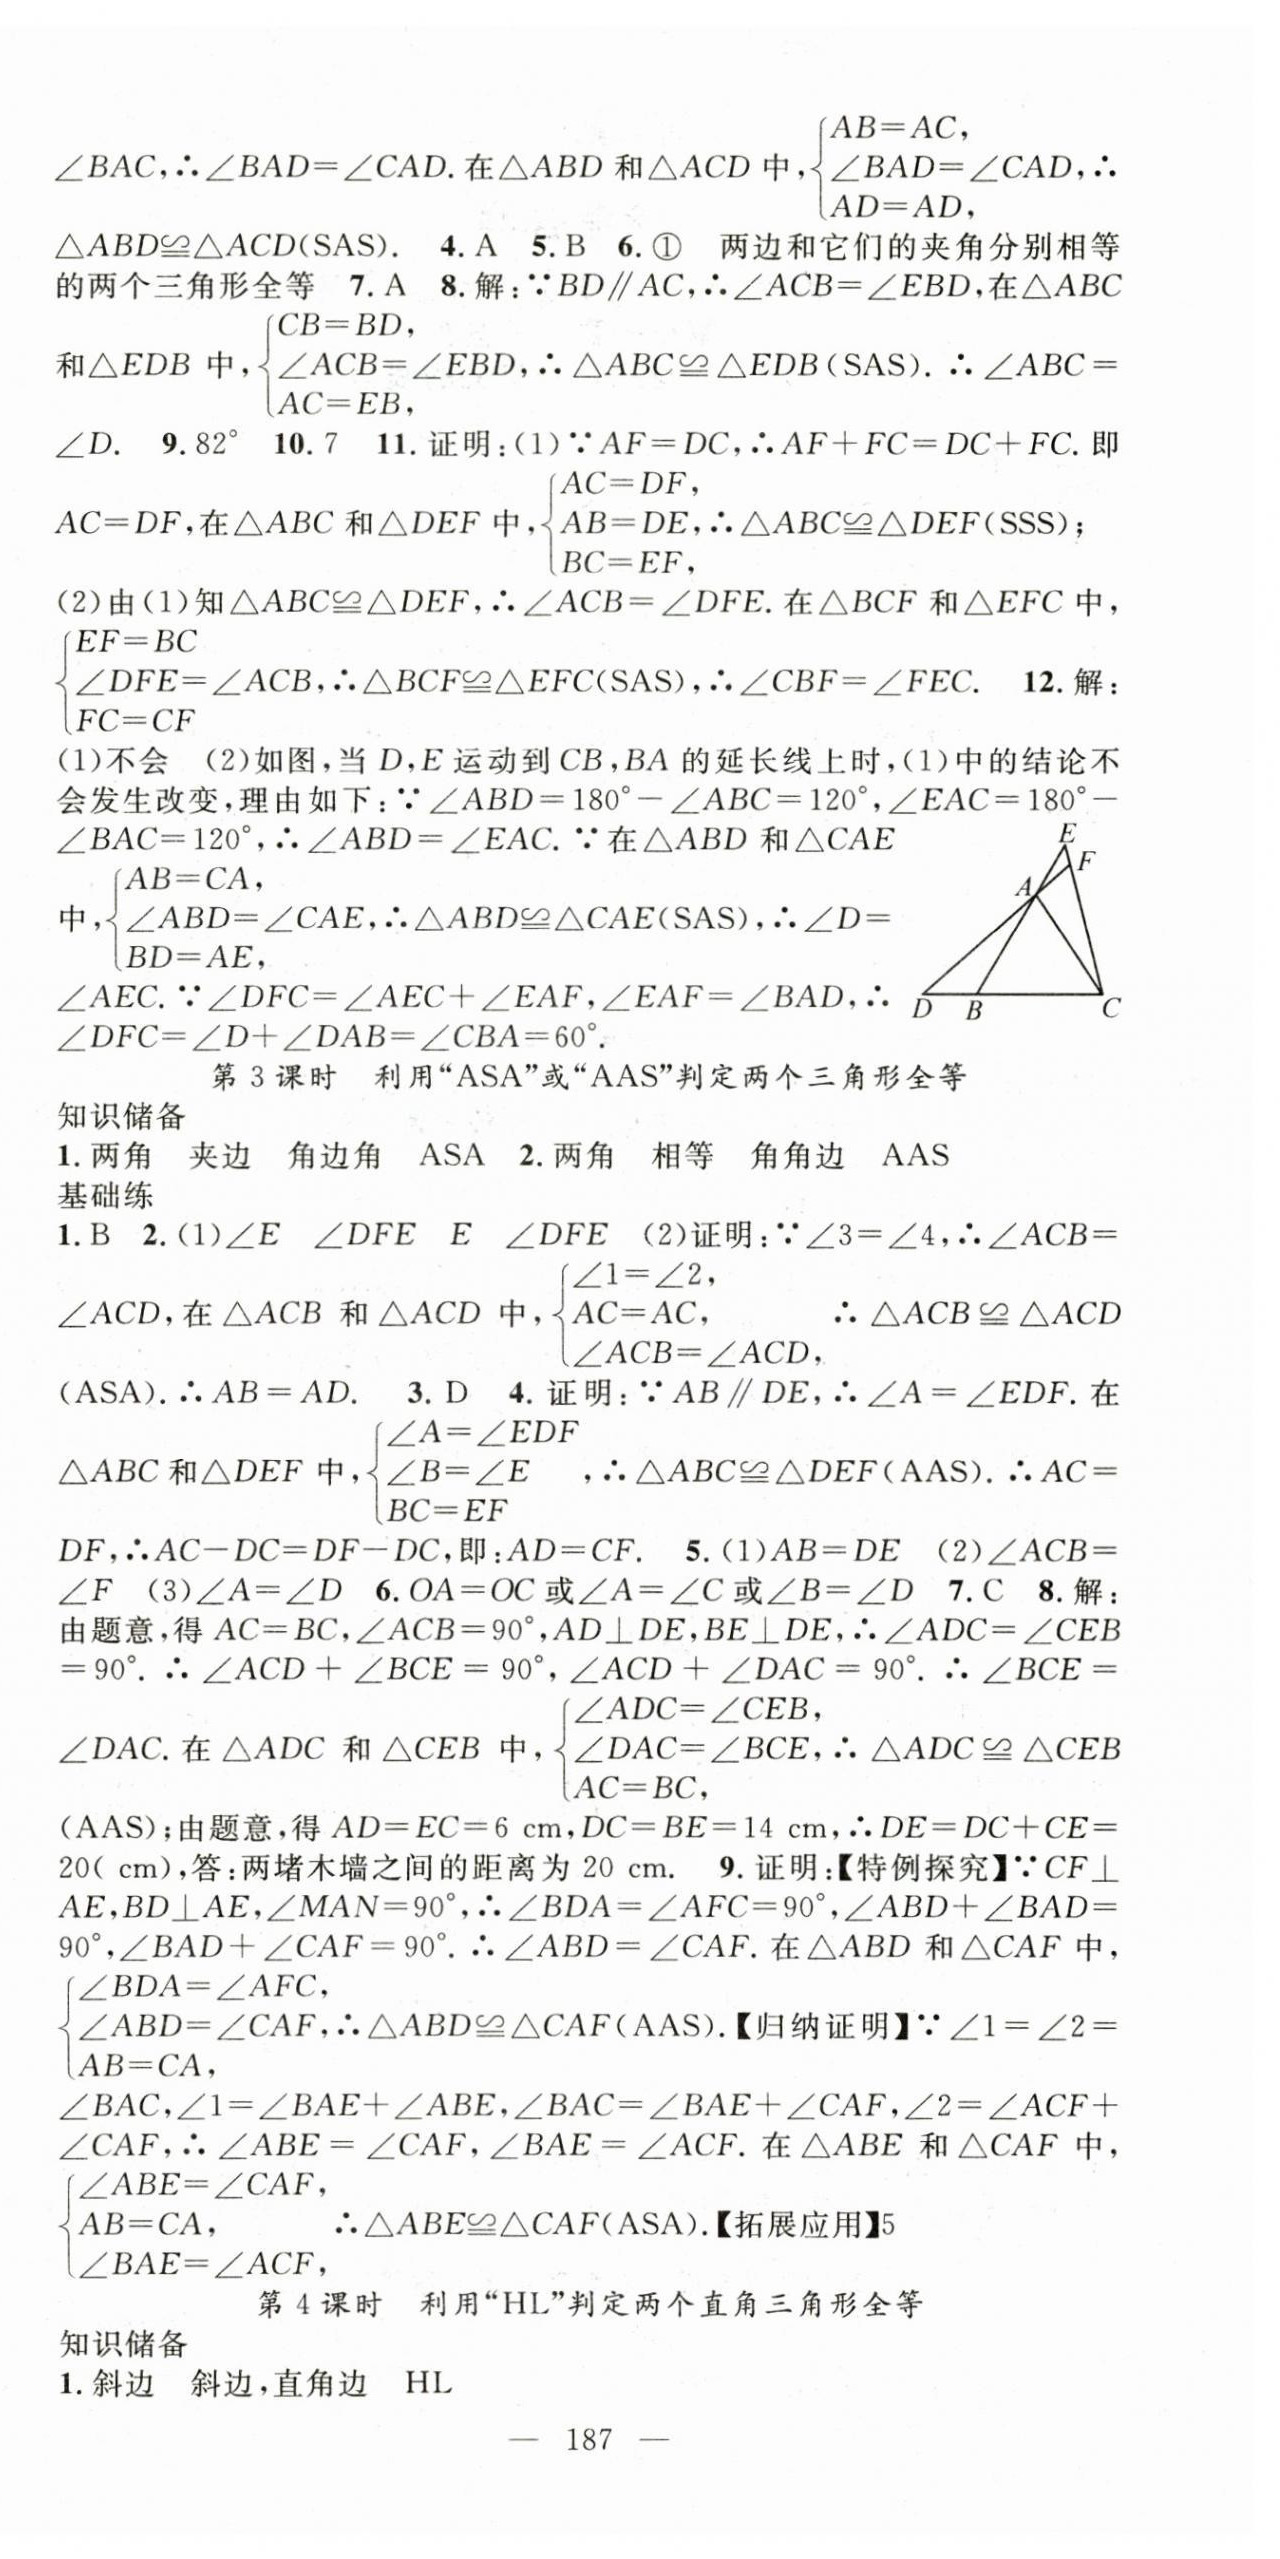 AB=AC,
∠BAC,∴∠BAD=∠CAD.在△ABD 和△ACD 中,{∠BAD=∠CAD,∴
AD=AD,
△ABD≌△ACD(SAS). 4.A 5.B 6.① 两边和它们的夹角分别相等
的两个三角形全等 7.A 8.解:∵BD∥AC,∴∠ACB=∠EBD,在△ABC
CB=BD,
和△EDB 中,{∠ACB=∠EBD,∴△ABC≌△EDB(SAS).∴∠ABC=
AC=EB,
∠D. 9.82° 10.7 11.证明:(1)∵AF=DC,∴AF+FC=DC+FC.即
AC=DF,
AC=DF,在△ABC 和△DEF 中,{AB=DE,∴△ABC≌△DEF(SSS);
BC=EF,
(2)由(1)知△ABC≌△DEF,∴∠ACB=∠DFE.在△BCF 和△EFC 中,
EF=BC
{∠DFE=∠ACB,∴△BCF≌△EFC(SAS),∴∠CBF=∠FEC. 12.解:
FC=CF
(1)不会 (2)如图,当 D,E 运动到 CB,BA 的延长线上时,(1)中的结论不
会发生改变,理由如下:∵∠ABD=180°-∠ABC=120°,∠EAC=180°-
∠BAC=120°,∴∠ABD=∠EAC.∵在△ABD 和△CAE
AB=CA,
中,{∠ABD=∠CAE,∴△ABD≌△CAE(SAS),∴∠D=
BD=AE,
∠AEC.∵∠DFC=∠AEC+∠EAF,∠EAF=∠BAD,∴
∠DFC=∠D+∠DAB=∠CBA=60°.
E
F
A
D B C
第 3 课时 利用“ASA”或“AAS”判定两个三角形全等
知识储备
1.两角 夹边 角边角 ASA 2.两角 相等 角角边 AAS
基础练
1.B 2.(1)∠E ∠DFE E ∠DFE (2)证明:∵∠3=∠4,∴∠ACB=
∠1=∠2,
∠ACD,在△ACB 和△ACD 中,{AC=AC, ∴△ACB≌△ACD
∠ACB=∠ACD,
(ASA).∴AB=AD. 3.D 4.证明:∵AB∥DE,∴∠A=∠EDF.在
∠A=∠EDF
△ABC 和△DEF 中,{∠B=∠E ,∴△ABC≌△DEF(AAS).∴AC=
BC=EF
DF,∴AC-DC=DF-DC,即:AD=CF. 5.(1)AB=DE (2)∠ACB=
∠F (3)∠A=∠D 6.OA=OC 或∠A=∠C 或∠B=∠D 7.C 8.解:
由题意,得 AC=BC,∠ACB=90°,AD⊥DE,BE⊥DE,∴∠ADC=∠CEB
=90°.∴∠ACD+∠BCE=90°,∠ACD+∠DAC=90°.∴∠BCE=
∠ADC=∠CEB,
∠DAC.在△ADC 和△CEB 中,{∠DAC=∠BCE,∴△ADC≌△CEB
AC=BC,
(AAS);由题意,得 AD=EC=6 cm,DC=BE=14 cm,∴DE=DC+CE=
20( cm),答:两堵木墙之间的距离为 20 cm. 9.证明:【特例探究】∵CF⊥
AE,BD⊥AE,∠MAN=90°,∴∠BDA=∠AFC=90°,∠ABD+∠BAD=
90°,∠BAD+∠CAF=90°.∴∠ABD=∠CAF.在△ABD 和△CAF 中,
∠BDA=∠AFC,
{∠ABD=∠CAF,∴△ABD≌△CAF(AAS).【归纳证明】∵∠1=∠2=
AB=CA,
∠BAC,∠1=∠BAE+∠ABE,∠BAC=∠BAE+∠CAF,∠2=∠ACF+
∠CAF,∴∠ABE=∠CAF,∠BAE=∠ACF.在△ABE 和△CAF 中,
∠ABE=∠CAF,
{AB=CA, ∴△ABE≌△CAF(ASA).【拓展应用】5
∠BAE=∠ACF,
第 4 课时 利用“HL”判定两个直角三角形全等
知识储备
1.斜边 斜边,直角边 HL
— 187 —